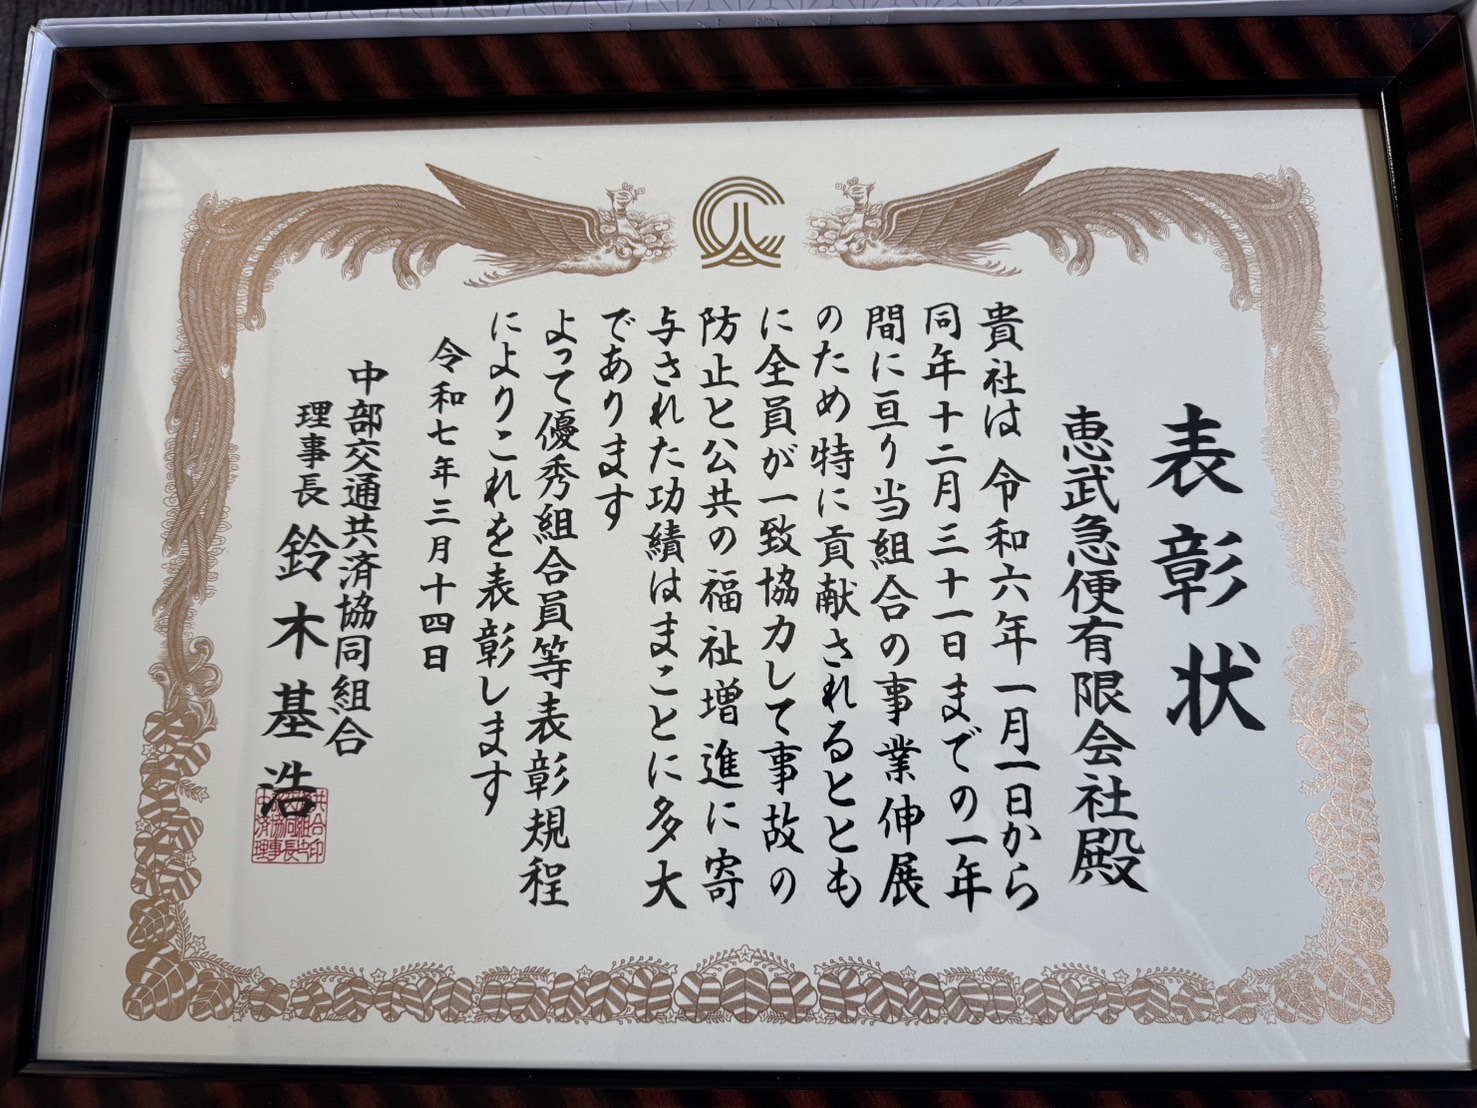 表彰状
恵武急便有限会社殿
貴社は令和六年一月一日から
同年十二月三十一日までの一年
間に亘り当組合の事業伸展
のため特に貢献されるととも
に全員が一致協力して事故の
防止と公共の福祉増進に寄
与された功績はまことに多大
であります
よって優秀組合員等表彰規程
によりこれを表彰します
令和七年三月十四日
中部交通共済協同組合
理事長 鈴木基浩